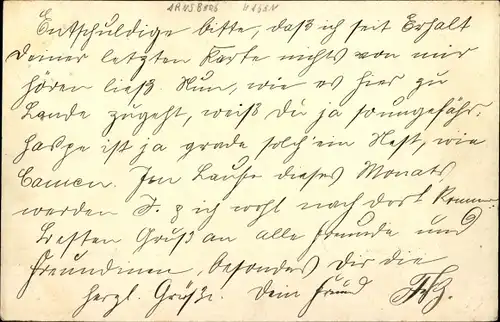 ARNSBERG HAGEN
Entschuldige bitte, daß ich seit Erhalt
Deiner letzten Karte nichts von mir
hören ließ. Nun, wie es hier zu
Lande zugeht, weißt Du ja so ungefähr.
Haspe ist ja grade solch' ein Nest, wie
Camen. Im Laufe dieses Monats
werden J. & ich wohl nach dort kommen.
Besten Gruß an alle Freunde und
Freundinnen, besonders Dir die
herzl. Grüße. Dein Freund